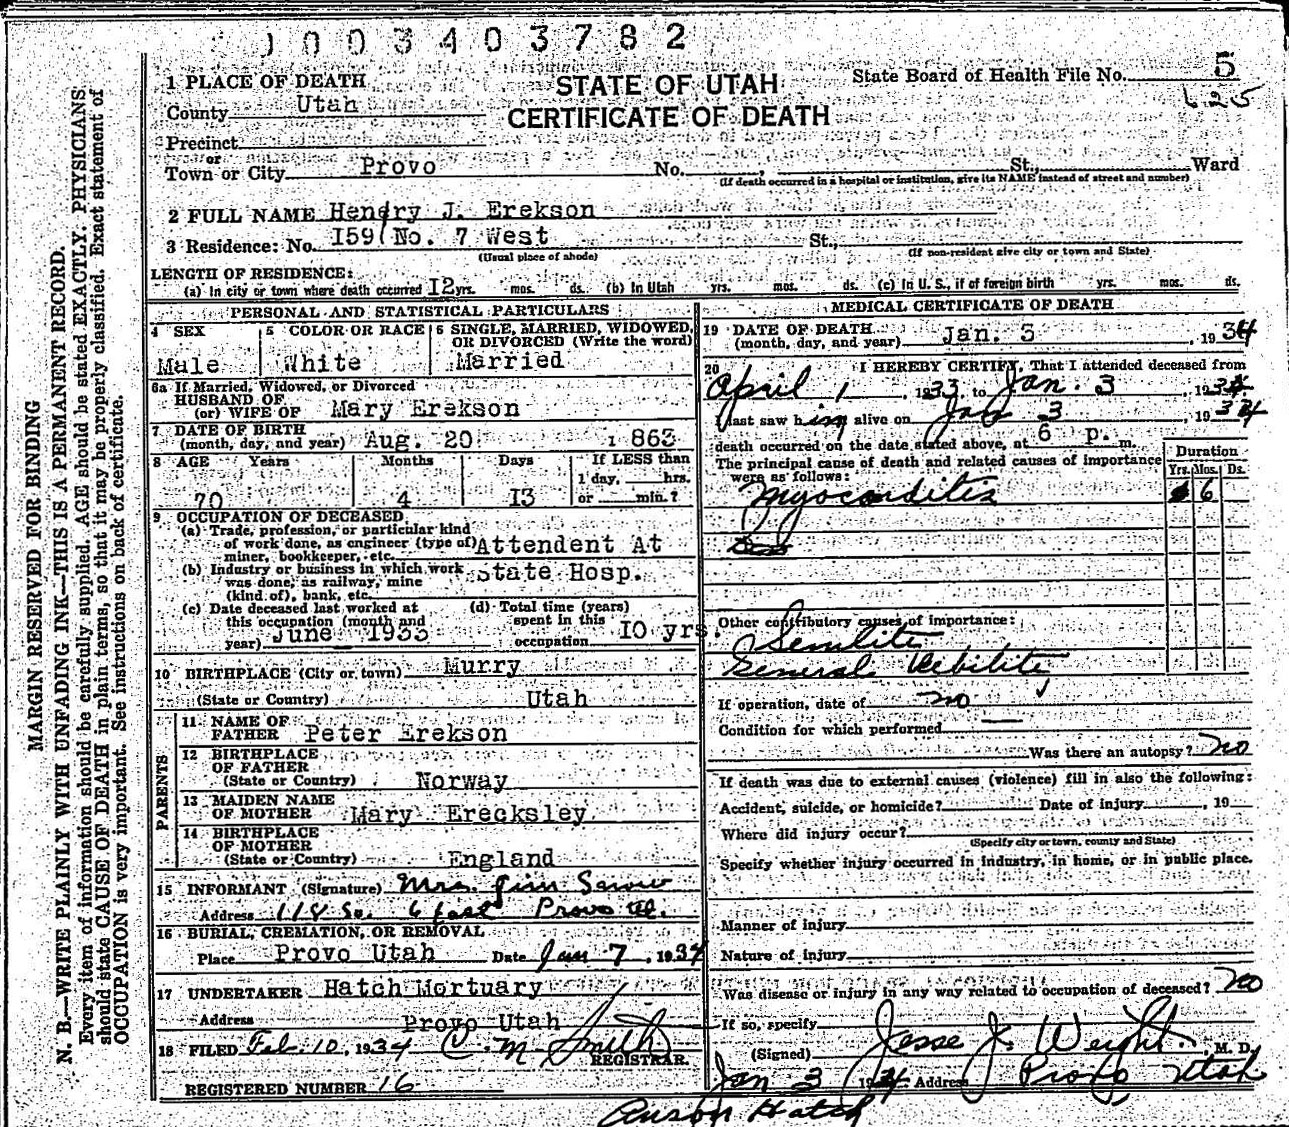 1003403782
1 PLACE OF DEATH
STATE OF UTAH
CERTIFICATE OF DEATH
State Board of Health File No. 5
625
County Utah
Precinct
or
Town or City Provo No. , St., Ward
(If death occurred in a hospital or institution, give its NAME instead of street and number)
2 FULL NAME Henry J. Erekson
3 Residence: No. I59 No. 7 West St.,
(Usual place of abode) (If non-resident give city or town and State)
LENGTH OF RESIDENCE:
(a) In city or town where death occurred I2 yrs. mos. ds. (b) In Utah yrs. mos. ds. (c) In U. S., if of foreign birth yrs. mos. ds.
PERSONAL AND STATISTICAL PARTICULARS
4 SEX 5 COLOR OR RACE 6 SINGLE, MARRIED, WIDOWED,
OR DIVORCED (Write the word)
Male White Married
6a If Married, Widowed, or Divorced
HUSBAND OF
(or) WIFE OF Mary Erekson
7 DATE OF BIRTH
(month, day, and year) Aug. 20 1863
8 AGE Years Months Days If LESS than
1 day, hrs.
70 4 I3 or min.?
9 OCCUPATION OF DECEASED
(a) Trade, profession, or particular kind
of work done, as engineer (type of)
miner, bookkeeper, etc. Attendent At
(b) Industry or business in which work
was done, as railway, mine
(kind of), bank, etc. State Hosp.
(c) Date deceased last worked at
this occupation (month and
year) June 1933
(d) Total time (years)
spent in this
occupation I0 yrs.
10 BIRTHPLACE (City or town) Murry
(State or Country) Utah
PARENTS
11 NAME OF
FATHER Peter Erekson
12 BIRTHPLACE
OF FATHER
(State or Country) Norway
13 MAIDEN NAME
OF MOTHER Mary Erecksley
14 BIRTHPLACE
OF MOTHER
(State or Country) England
15 INFORMANT (Signature) Mrs. Jim
Address 118 So. 6 East Provo Ut.
16 BURIAL, CREMATION, OR REMOVAL
Place Provo Utah Date Jan 7, 1934
17 UNDERTAKER Hatch Mortuary
Address Provo Utah
18 FILED Feb. 10, 1934 C. M. Smith
REGISTRAR.
REGISTERED NUMBER 16
MEDICAL CERTIFICATE OF DEATH
19 DATE OF DEATH
(month, day, and year) Jan. 3, 1934
20 I HEREBY CERTIFY, That I attended deceased from
April 1, 1933 to Jan. 3, 1934
I last saw him alive on Jan 3, 1934
death occurred on the date stated above, at 6 p. m.
The principal cause of death and related causes of importance
were as follows:
Duration
Yrs. Mos. Ds.
Myocarditis 6
Other contributory causes of importance:
Senility
General Debility
If operation, date of no
Condition for which performed
Was there an autopsy? no
If death was due to external causes (violence) fill in also the following:
Accident, suicide, or homicide? Date of injury , 19
Where did injury occur?
(Specify city or town, county and State)
Specify whether injury occurred in industry, in home, or in public place.
Manner of injury
Nature of injury
Was disease or injury in any way related to occupation of deceased? no
If so, specify
(Signed) Jesse J. Weight. M. D.
Jan 3 1934 Address Provo Utah
Anson Hatch
MARGIN RESERVED FOR BINDING
N. B.—WRITE PLAINLY WITH UNFADING INK—THIS IS A PERMANENT RECORD.
Every item of information should be carefully supplied. AGE should be stated EXACTLY. PHYSICIANS
should state CAUSE OF DEATH in plain terms, so that it may be properly classified. Exact statement of
OCCUPATION is very important. See instructions on back of certificate.